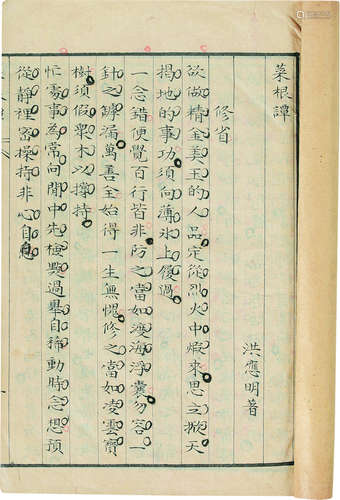 菜根譚
洪應明著
修省
欲做精金美玉的人品定從烈火中煅來思立掀天
揭地的事功須向薄氷上履過
一念錯便覺百行皆非防之當如渡海浮囊勿容一
針之罅漏萬善全始得一生無愧修之當如凌雲寶
樹須假眾木以撐持
忙處事為常向閒中先檢點過舉自稀動時念想預
從靜裡密操持非心自息